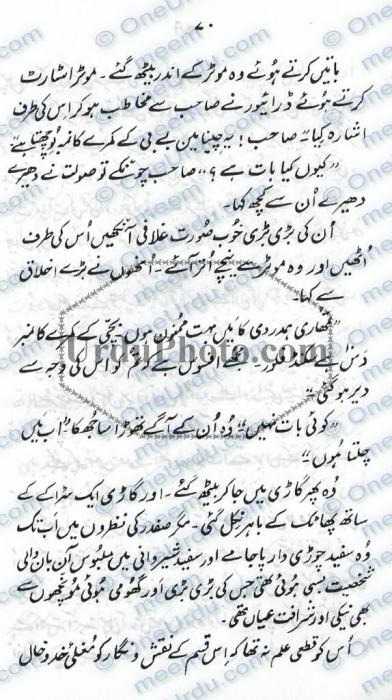 ۷۰
باتیں کرتے ہوئے وہ موٹر کے اندر بیٹھ گئے۔ موٹر اسٹارٹ
کرتے ہوئے ڈرائیور نے صاحب سے مخاطب ہو کر اس کی طرف
اشارہ کیا۔ صاحب! یہ چینا مین بے بی کے کمرے کا نمبر پوچھتا ہے۔
"کیوں کیا بات ہے؟" صاحب چونکے تو صولت نے دھیرے
دھیرے اُن سے کچھ کہا۔
اُن کی بڑی بڑی خوب صورت غلافی آنکھیں اُس کی طرف
اُٹھیں اور وہ موٹر سے نیچے اُتر آئے۔ انھوں نے بڑے اخلاق
سے کہا۔
"تمھاری ہمدردی کا میں بہت ممنون ہوں۔ بچّی کے کمرے کا نمبر
دس ہے مسٹر صفدر۔ مجھے افسوس ہے کہ تم کو اس کی وجہ سے
دیر ہو گئی۔"
"کوئی بات نہیں۔" وُہ اُن کے آگے تھوڑا سا جُھکا "اب میں
چلتا ہُوں۔"
وُہ پھر گاڑی میں جا کر بیٹھ گئے۔ اور گاڑی ایک سڑاکے کے
ساتھ پھاٹک کے باہر نکل گئی۔ مگر صفدر کی نظروں میں اب تک
وُہ سفید چوڑی دار پاجامے اور سفید شیروانی میں ملبوس آن بان والی
شخصیت بسی ہُوئی تھی جس کی بڑی بڑی اور گھومی ہُوئی مُونچھوں سے
بھی نیکی اور شرافت عیاں تھی۔
اُس کو قطعی علم نہ تھا کہ اس قسم کے نقش و نگار کو مُغلئی خد و خال
UrduPhoto.com
OneUrdu.com